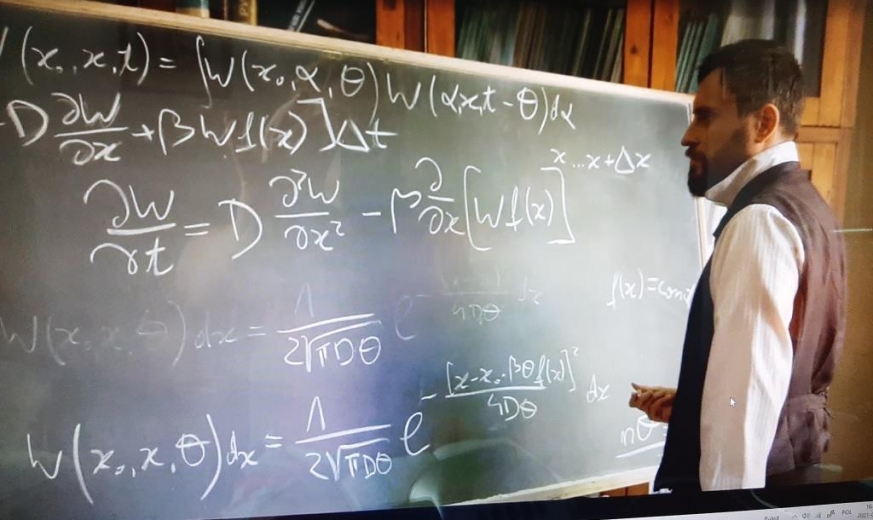 (x₀,x,t) = ∫W(x₀,α,θ)W(α,x,t-θ)dα
-D ∂W/∂x + βWf(x)]Δt
x...x+Δx
∂W/∂t = D ∂²W/∂x² - β ∂/∂x [Wf(x)]
f(x)=const
W(x₀,x,θ)dx = 1/(2√πDθ) e^-       /4Dθ dx
W(x₀,x,θ)dx = 1/(2√πDθ) e^-[x-x₀-βθf(x)]²/4Dθ dx
nθ=
POL